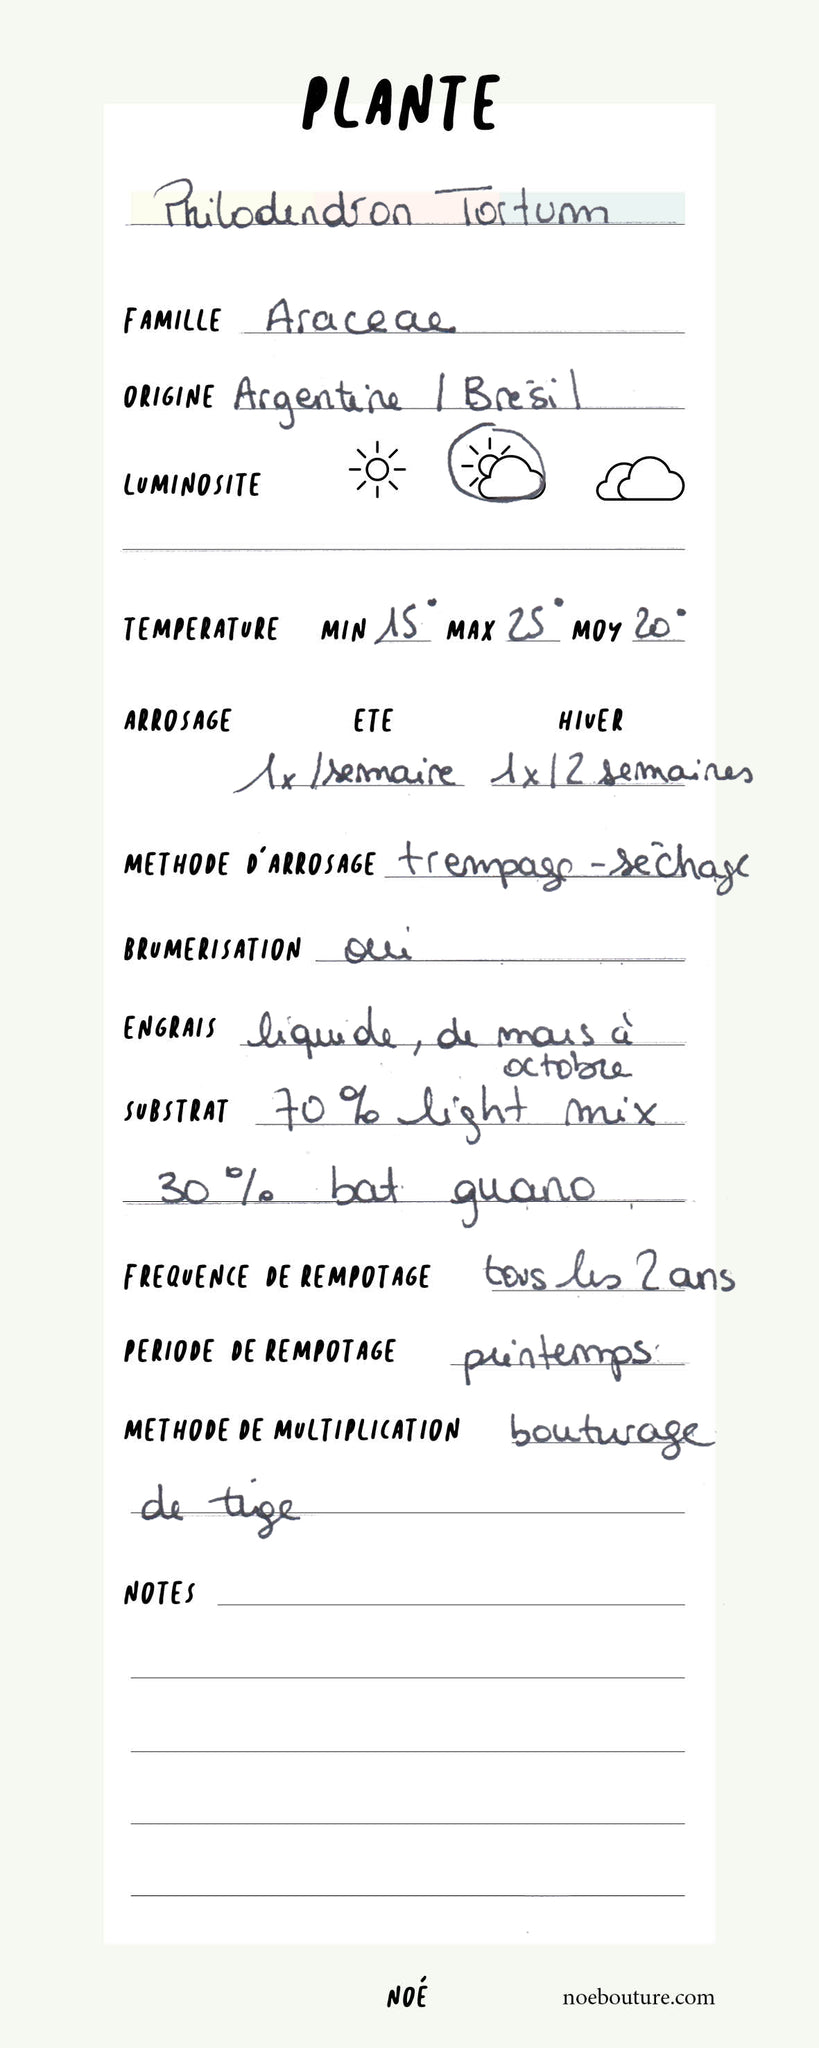 PLANTE
Philodendron Tortum
FAMILLE Araceae
ORIGINE Argentine / Brésil
LUMINOSITE
TEMPERATURE MIN 15° MAX 25° MOY 20°
ARROSAGE ETE HIVER
1x/semaine 1x/2 semaines
METHODE D'ARROSAGE trempage - séchage
BRUMERISATION oui
ENGRAIS liquide, de mars à
octobre
SUBSTRAT 70% light mix
30% bat guano
FREQUENCE DE REMPOTAGE tous les 2 ans
PERIODE DE REMPOTAGE printemps
METHODE DE MULTIPLICATION bouturage
de tige
NOTES
NOÉ noebouture.com